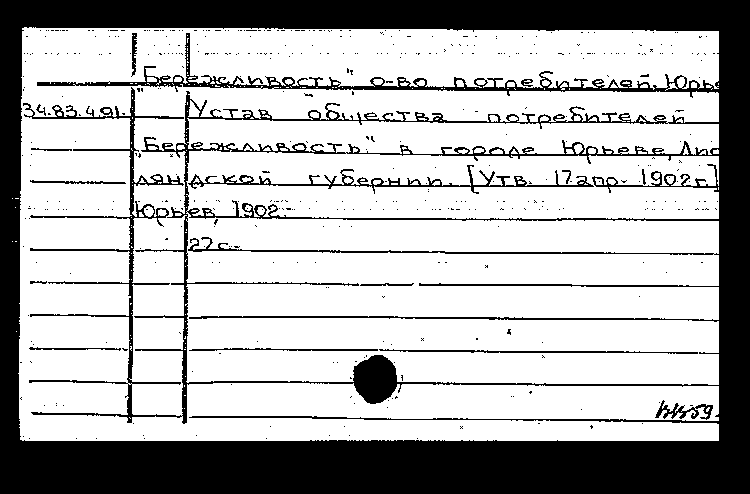 "Бережливость", о-во потребителей. Юрье
34.83.4.91. Устав общества потребителей
"Бережливость" в городе Юрьеве, Лиф
ляндской губернии. [Утв. 17 апр. 1902 г.]
Юрьев, 1902.-
27 с.-